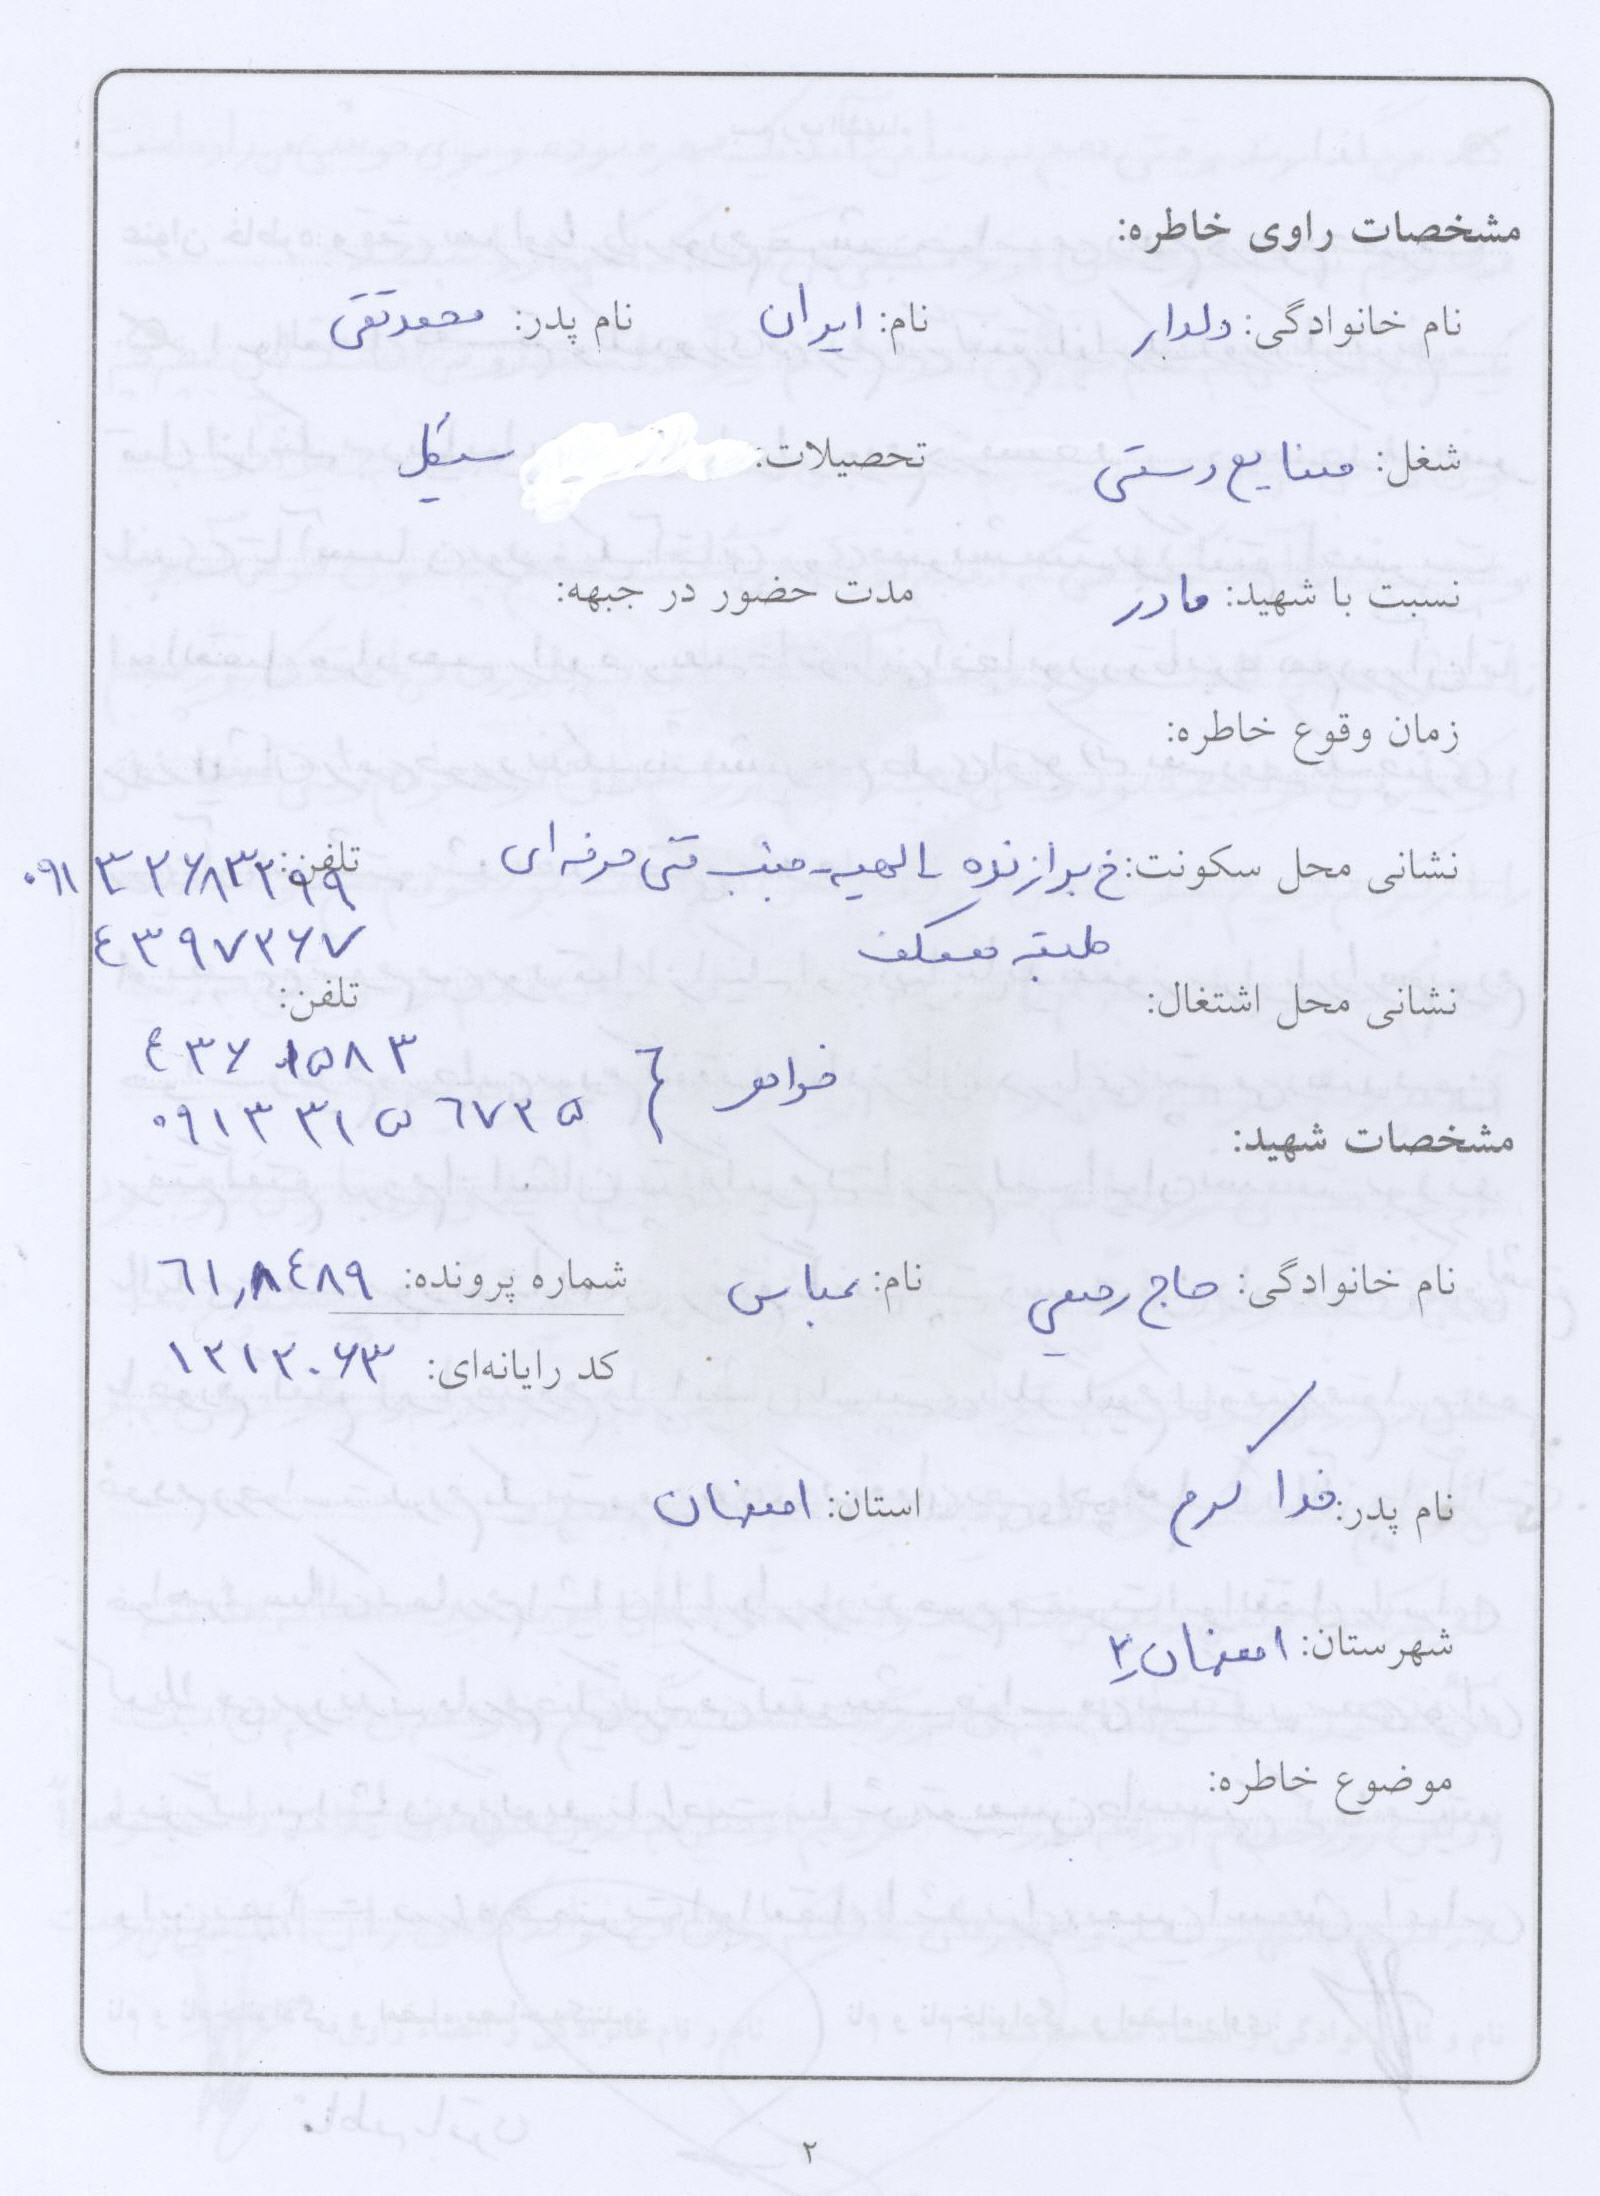 مشخصات راوی خاطره:
نام خانوادگی: دلدار نام: ایران نام پدر: محمدتقی
شغل: صنایع دستی تحصیلات: سیکل
نسبت با شهید: مادر مدت حضور در جبهه:
زمان وقوع خاطره:
نشانی محل سکونت: خ برازنده - الهیه - جنب فنی حرفه‌ای تلفن: ۰۹۱۳۲۶۸۳۲۹۹
طبقه همکف ۴۳۹۷۲۶۷
نشانی محل اشتغال: تلفن:
خواهر { ۴۳۶۱۵۸۳
۰۹۱۳۳۱۵۶۷۲۵
مشخصات شهید:
نام خانوادگی: حاج رحیمی نام: عباس شماره پرونده: ۶۱٫۸۴۸۹
کد رایانه‌ای: ۱۲۱۲۰۶۳
نام پدر: خدا کرم استان: اصفهان
شهرستان: اصفهان ۲
موضوع خاطره:
۲